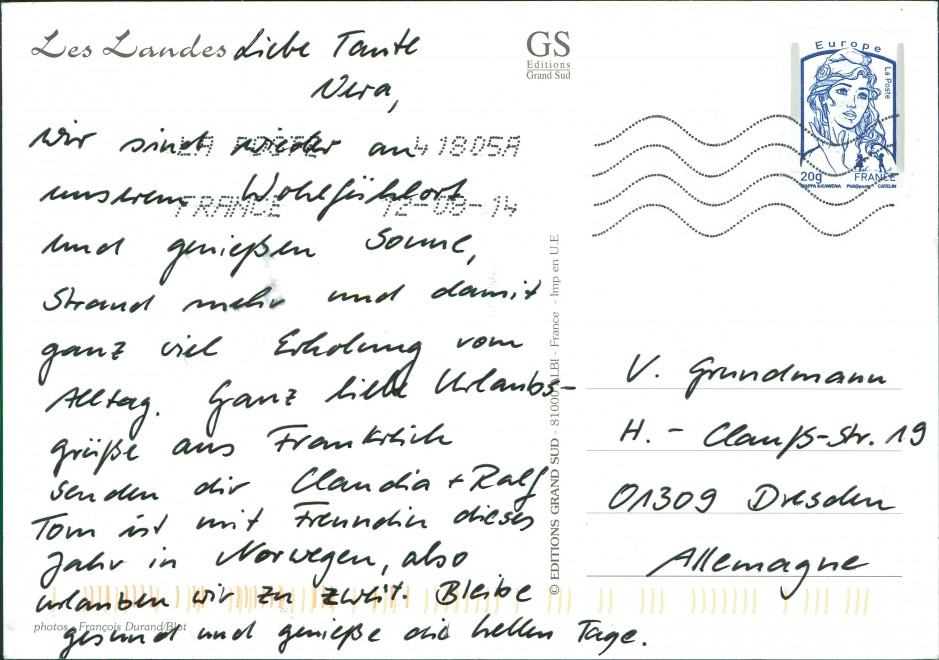 Les Landes
Liebe Tante
Vera,
wir sind wieder an
unserem Wohlfühlort
und genießen Sonne,
Strand mehr und damit
ganz viel Erholung vom
Alltag. Ganz liebe Urlaubs-
grüße aus Frankreich
senden dir Claudia + Ralf
Tom ist mit Freundin dieses
Jahr in Norwegen, also
urlauben wir zu zweit. Bleibe
gesund und genieße die hellen Tage.
photos : François Durand/Blot
LA POSTE 41805A
FRANCE 12-08-14
GS
Editions
Grand Sud
© EDITIONS GRAND SUD - 81000 ALBI - France - Imp en U.E
Europe
La Poste
20g FRANCE
CIAPPA & KAWENA Phil@poste CATELIN
V. Grundmann
H.-Clauß-Str. 19
01309 Dresden
Allemagne